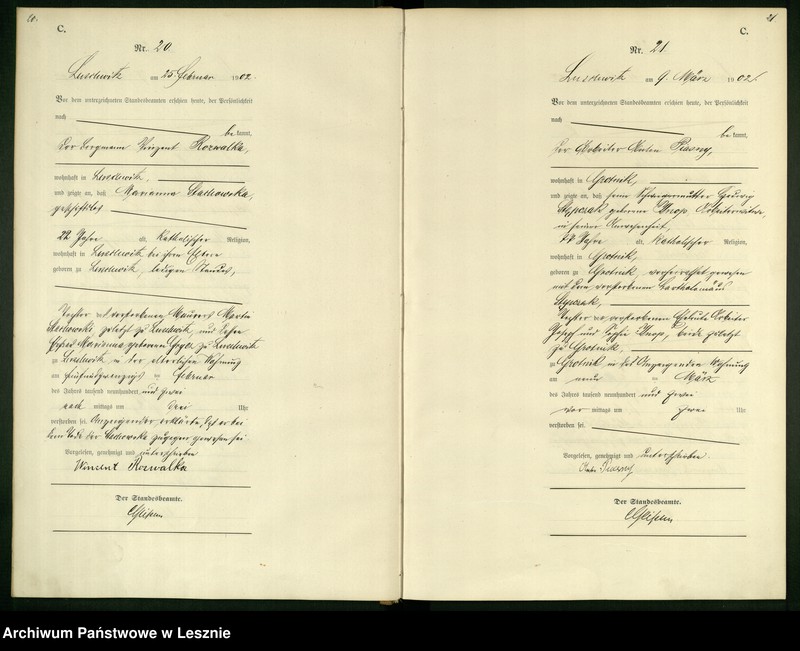 20.
C.
Nr. 20.
Luschwitz am 25. Februar 1902.
Vor dem unterzeichneten Standesbeamten erschien heute, der Persönlichkeit
nach
bekannt,
der Bergmann Vinzent Rozwalka,
wohnhaft in Luschwitz,
und zeigte an, daß Marianna Stachowska,
geschäftslos
22 Jahre alt, katholischer Religion,
wohnhaft in Luschwitz bei ihren Eltern
geboren zu Luschwitz, ledigen Standes,
Tochter des verstorbenen Maurers Martin
Stachowski, zuletzt zu Luschwitz, und dessen
Ehefrau Marianna geborenen zu Luschwitz
zu Luschwitz in der elterlichen Wohnung
am fünfundzwanzigsten Februar
des Jahres tausend neunhundert und zwei
nach mittags um drei Uhr
verstorben sei. Anzeigender erklärte, daß er bei
dem Tode der Stachowska zugegen gewesen sei
Vorgelesen, genehmigt und unterschrieben
Wincent Rozwalka
Der Standesbeamte.
21
C.
Nr. 21.
Luschwitz am 9. März 1902.
Vor dem unterzeichneten Standesbeamten erschien heute, der Persönlichkeit
nach
bekannt,
der Arbeiter Anton Piasny,
wohnhaft in Grotnik,
und zeigte an, daß seine Schwiegermutter Hedwig
Stypczak geborene Knop, Arbeiterwitwe,
in seiner Anwesenheit,
Jahre alt, katholischer Religion,
wohnhaft in Grotnik,
geboren zu Grotnik, verheirathet gewesen
mit dem verstorbenen Bartholomäus
Stypczak,
Tochter der verstorbenen Eheleute Arbeiter
Joseph und Sophie Knop, beide zuletzt
zu Grotnik,
zu Grotnik in des Anzeigenden Wohnung
am neunten März
des Jahres tausend neunhundert und zwei
vor mittags um zwei Uhr
verstorben sei.
Vorgelesen, genehmigt und unterschrieben
Piasny
Der Standesbeamte.
Archiwum Państwowe w Lesznie